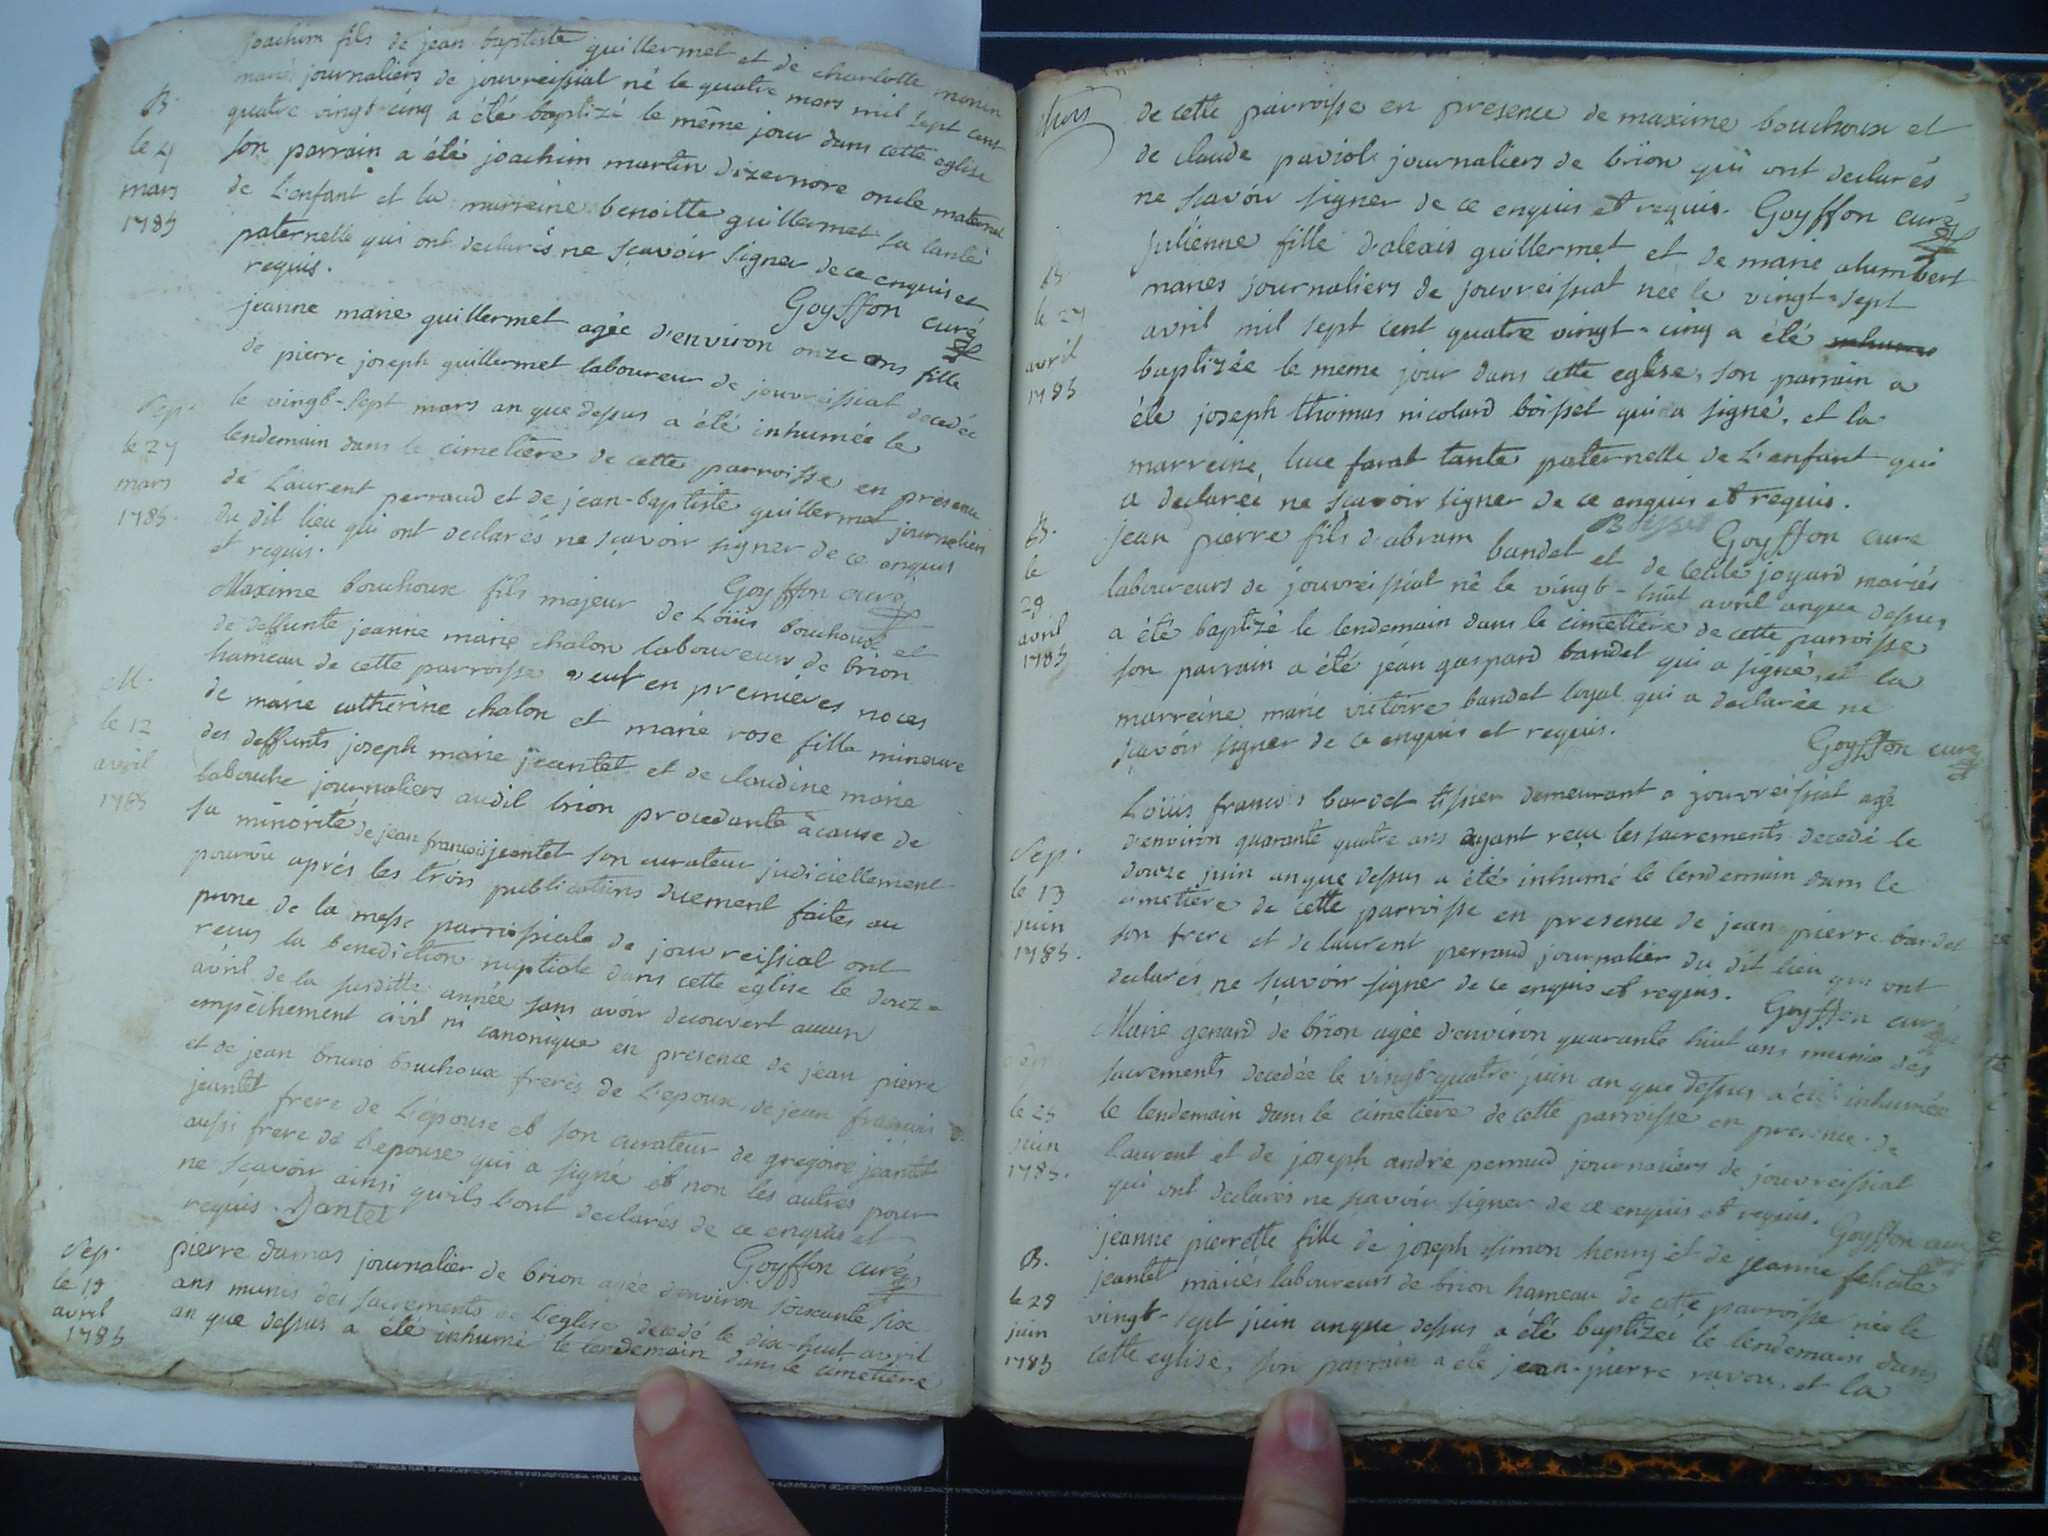 joachim fils de jean baptiste guillermet et de charlotte monin
mariés journaliers de jouvreissiat né le quatre mars mil sept cent
quatre vingt-cinq a été baptizé le même jour dans cette eglise
son parrain a été joachim martin dizernore oncle maternel
de L'enfant et la marreine benoitte guillermet sa tante
paternelle qui ont declarés ne sçavoir signer de ce enquis et
requis.
Goyffon curé
B.
le 4
mars
1785
jeanne marie guillermet agée d'environ onze ans fille
de pierre joseph guillermet laboureur de jouvreissiat decedée
le vingt-sept mars an que dessus a été inhumée le
lendemain dans le cimetière de cette parroisse en présence
de Laurent perraud et de jean-baptiste guillermet journaliers
du dit lieu qui ont declarés ne sçavoir signer de ce enquis
et requis.
Goyffon curé
Sep.
le 27
mars
1785.
Maxime bouchoux fils majeur de Loüis bouchoux et
de deffunte jeanne marie chalon laboureurs de brion
hameau de cette parroisse veuf en premières noces
de marie catherine chalon et marie rose fille mineure
des deffunts joseph marie jeantet et de claudine marie
labouche journaliers audit brion procedante àcause de
sa minorité de jean francois jeantet son curateur judiciellement
pourvü aprés les trois publications duement faites au
prone de la messe parroissiale de jouvreissiat ont
reçus la benediction nuptiale dans cette eglise le douze
avril de la susditte année sans avoir decouvert aucun
empêchement civil ni canonique en presence de jean pierre
et de jean bruno bouchoux freres de L'epoux, de jean francois
jeantet frere de L'épouse et son curateur de gregoire jeantet
aussi frere de l'epouse qui a signé et non les autres pour
ne sçavoir ainsi qu'ils l'ont declarés de ce enquis et
requis. Jantet
Goyffon curé
M.
le 12
avril
1785
pierre dumas journalier de brion agée d'environ soixante six
ans munis des sacrements de l'eglise decedé le dix-huit avril
an que dessus a été inhumé le lendemain dans le cimetière
Sep.
le 19
avril
1785
de cette parroisse en presence de maxime bouchoux et
de claude paviol journaliers de brion qui ont declarés
ne sçavoir signer de ce enquis et requis. Goyffon curé
julienne fille d'alexis guillermet et de marie alumbert
mariés journaliers de jouvreissiat née le vingt-sept
avril mil sept cent quatre vingt-cinq a été
baptizée le meme jour dans cette eglise, son parrain a
éte joseph thomas nicolard boisset qui a signé, et la
marreine, luce farat tante paternelle de L'enfant qui
a declarée ne sçavoir signer de ce enquis et requis.
Goyffon curé
B.
le 27
avril
1785
jean pierre fils d'abram bandet et de cecile joyard mariés
laboureurs de jouvreissiat né le vingt-huit avril anque dessus
a été baptizé le lendemain dans le cimetière de cette parroisse
son parrain a été jean gaspard bandet qui a signé, et la
marreine, marie victoire bandet loyal qui a declarée ne
sçavoir signer de ce enquis et requis.
Goyffon curé
B.
le
29
avril
1785
Loüis francois bardet tissier demeurant a jouvreissiat agé
d'environ quarante quatre ans ayant reçu les sacrements decedé le
douze juin anque dessus a été inhumé le lendemain dans le
cimetière de cette parroisse en presence de jean pierre bardet
son frere et de laurent perraud journalier du dit lieu qui ont
declarés ne sçavoir signer de ce enquis et requis.
Goyffon curé
Sep.
le 13
juin
1785.
Marie genard de brion agée d'environ quarante huit ans munie des
sacrements decedée le vingt-quatre juin an que dessus a été inhumée
le lendemain dans le cimetière de cette parroisse en presence de
laurent et de joseph andré perraud journaliers de jouvreissiat
qui ont declarés ne sçavoir signer de ce enquis et requis.
Goyffon curé
le 25
juin
1785.
jeanne pierrette fille de joseph simon henry et de jeanne felicite
jeantet mariés laboureurs de brion hameau de cette parroisse née le
vingt-sept juin anque dessus a été baptizée le lendemain dans
cette eglise, son parrain a été jean-pierre ravou, et la
B.
le 28
juin
1785